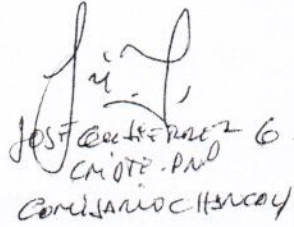 JOSE GUTIERREZ G
CMDTE. PNP
COMISARIO CHANCAY